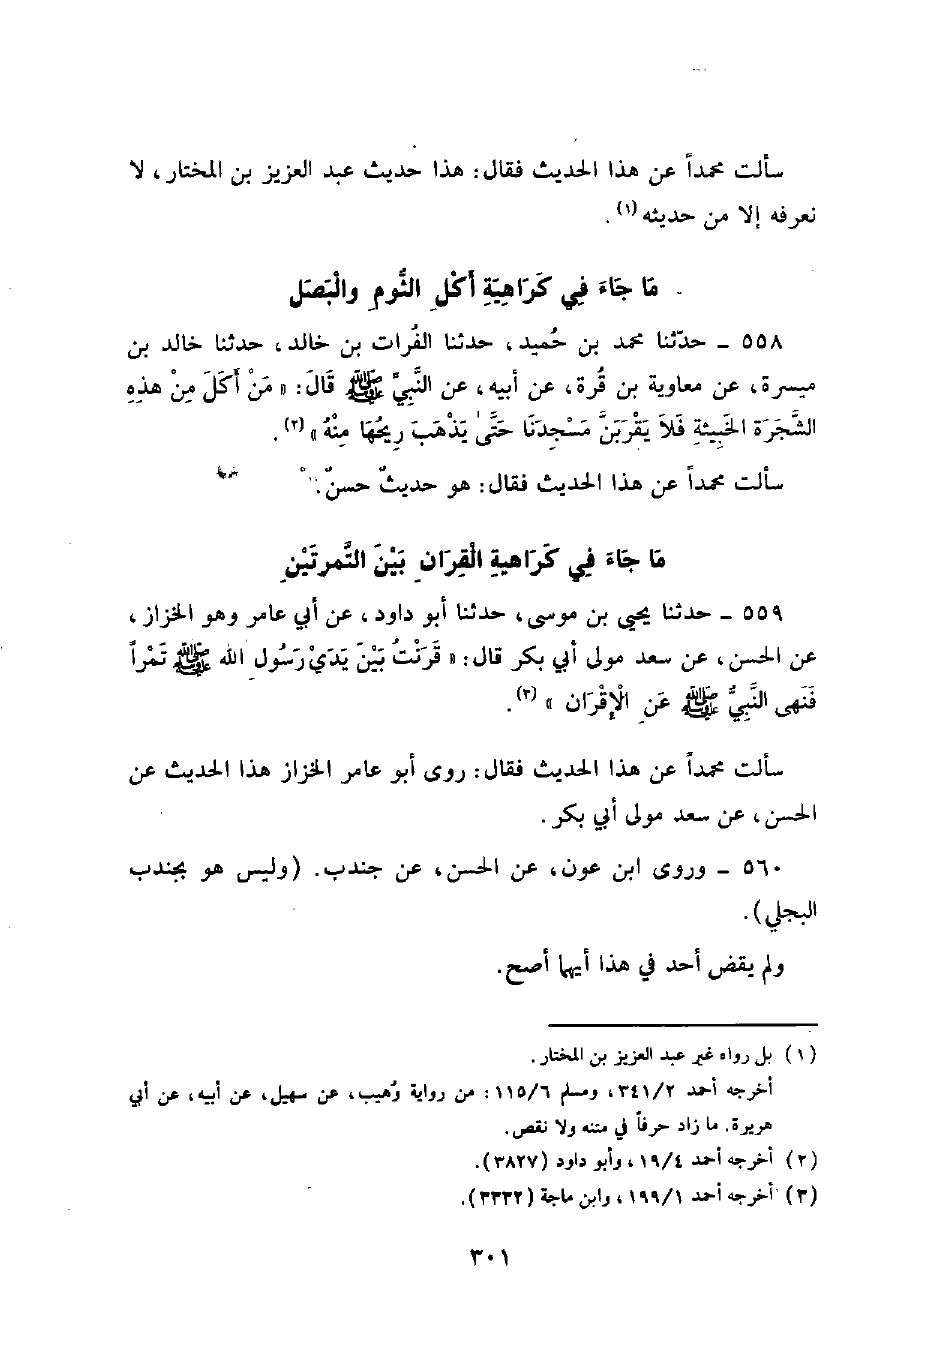 سألت محمداً عن هذا الحديث فقال: هذا حديث عبد العزيز بن المختار، لا
نعرفه إلا من حديثه (١).
مَا جَاءَ فِي كَرَاهِيَةِ أَكْلِ الثُّومِ والْبَصَلِ
٥٥٨ - حدّثنا محمد بن حُميد، حدثنا الفُرات بن خالد، حدثنا خالد بن
ميسرة، عن معاوية بن قُرة، عن أبيه، عن النَّبِيِّ ﷺ قَالَ: « مَنْ أَكَلَ مِنْ هذهِ
الشَّجَرَة الخَبِيثةِ فَلاَ يَقْرَبَنَّ مَسْجِدَنَا حَتَّى يَذْهَبَ رِيحُهَا مِنْهُ » (٢).
سألت محمداً عن هذا الحديث فقال: هو حديثٌ حسنٌ.
مَا جَاءَ فِي كَرَاهيةِ القِرَانِ بَيْنَ التَّمرتَيْنِ
٥٥٩ - حدثنا يحيى بن موسى، حدثنا أبو داود، عن أبي عامر وهو الخزاز،
عن الحسن، عن سعد مولى أبي بكر قال: « قَرَنْتُ بَيْنَ يَدَيْ رَسُولِ الله ﷺ تَمْراً
فَنَهى النَّبِيُّ ﷺ عَنِ الْإِقْرَان » (٣).
سألت محمداً عن هذا الحديث فقال: روى أبو عامر الخزاز هذا الحديث عن
الحسن، عن سعد مولى أبي بكر.
٥٦٠ - وروى ابن عون، عن الحسن، عن جندب. (وليس هو بجندب
البجلي).
ولم يقض أحد في هذا أيهما أصح.
(١) بل رواه غير عبد العزيز بن المختار.
أخرجه أحمد ٣٤١/٢، ومسلم ١١٥/٦: من رواية وُهيب، عن سهيل، عن أبيه، عن أبي
هريرة. ما زاد حرفاً في متنه ولا نقص.
(٢) أخرجه أحمد ١٩/٤، وأبو داود (٣٨٢٧).
(٣) أخرجه أحمد ١٩٩/١، وابن ماجة (٣٣٣٢).
٣٠١